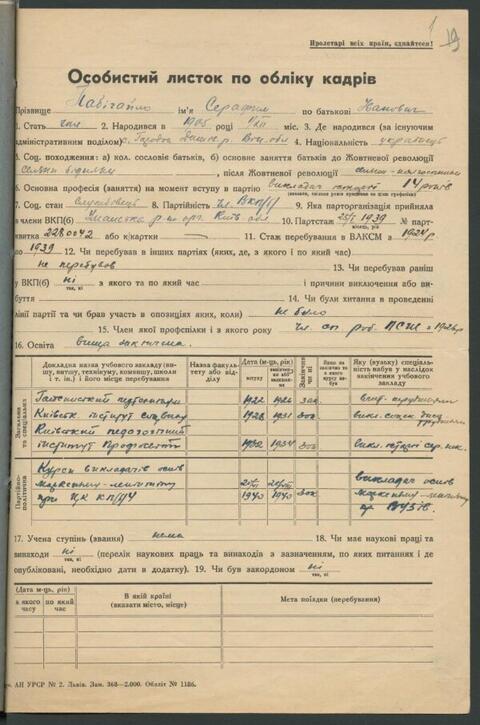 19
Пролетарі всіх країн, єднайтеся!
Особистий листок по обліку кадрів
Прізвище Набігайло ім'я Серафим по батькові Іванович
1. Стать чол 2. Народився в 1905 році 1/XII міс. 3. Де народився (за існуючим
адміністративним поділом) 4. Національність українець
5. Соц. походження: а) кол. сословіє батьків, б) основне заняття батьків до Жовтневої революції
селяни бідняки, після Жовтневої революції селяни-колгоспники
6. Основна професія (заняття) на момент вступу в партію викладач історії 14 років
7. Соц. стан Службовець 8. Партійність Чл. ВКП(б) 9. Яка парторганізація прийняла
в члени ВКП(б) Уманська р-н орг. Київ обл 10. Партстаж 1939 № парт-
місяць, рік
квитка 2280042 або к/картки — 11. Стаж перебування в ВЛКСМ з 1924 р
по 1939 12. Чи перебував в інших партіях (яких, де, з якого і по який час)
не перебував 13. Чи перебував раніш
у ВКП(б) ні з якого та по який час і причини виключення або ви-
так, ні
буття 14. Чи були хитання в проведенні
лінії партії та чи брав участь в опозиціях, яких (коли) не було
15. Член якої профспілки і з якого року Чл. сп роб. ПСШ з 1926 р
16. Освіта вища закінчена.
Докладна назва учбового закладу (ви-
шу, вотузу, технікуму, комвишу, школи
і т. ін.) і його місце перебування) Назва факуль-
тету або від-
ділу Дата (м-ць, рік) Закінчив
чи ні Яку (вузьку) спеціаль-
ність набув в наслідок
закінчення учбового
закладу
вступу
Загальна
та спеціальна
1922 1926 зак.
Київськ. інститут 1928 1931 зак.
Київський педагогічний
інститут Профосвіти 1932 1934 зак. викл. історії сер. шк.
Партійно-
політична
Курси викладачів основ
марксизму-ленінізму
при ЦК КП(б)У 1940 1940 зак викладач основ
марксизму-ленінізму
17. Учена ступінь (звання) нема 18. Чи має наукові праці та
винаходи ні (перелік наукових праць та винаходів з зазначенням, по яких питаннях і де
так, ні
опубліковані, необхідно дати в додатку). 19. Чи був закордоном ні
так, ні
(Дата м-ць, рік) В якій країні
(вказати місто, місце) Мета поїздки (перебування)
з якого
часу по який
час
АН УРСР № 2. Львів. Зам. 368—2.000. Обліт № 1186.